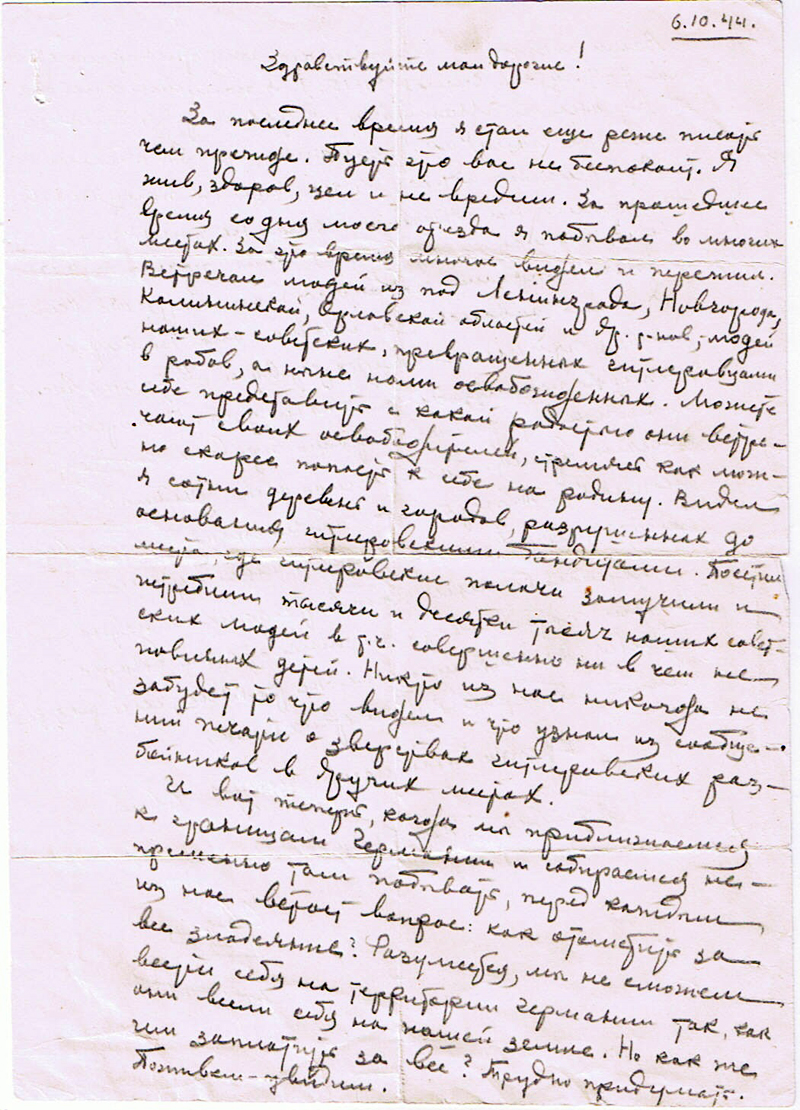 6.10.44.
Здравствуйте мои дорогие!
За последнее время я стал еще реже писать
чем прежде. Пусть это вас не беспокоит. Я
жив, здоров, цел и не вредим. За прошедшее
время со дня моего отъезда я побывал во многих
местах. За это время многое видел и пережил.
Встречал людей из под Ленинграда, Новгорода,
Калининской, Орловской областей и др. р-нов, людей
наших-советских, превращенных гитлеровцами
в рабов, а ныне нами освобожденных. Можете
себе представить с какой радостью они встре-
чают своих освободителей, стремясь как мож-
но скорее попасть к себе на родину. Видел
я сотни деревень и городов, разрушенных до
основания гитлеровскими бандитами. Посетил
места, где гитлеровские палачи замучили и
истребили тысячи и десятки тысяч наших совет-
ских людей в т.ч. совершенно ни в чем не-
повинных детей. Никто из нас никогда не
забудет то что видел и что узнал из сообще-
ний печати о зверствах гитлеровских раз-
бойников в других местах.
И вот теперь, когда мы приближаемся
к границам Германии и собираемся не-
пременно там побывать, перед каждым
из нас встает вопрос: как отомстить за
все злодеяние? Разумеется, мы не сможем
вести себя на территории Германии так, как
они вели себя на нашей земле. Но как же
им заплатить за всё? Трудно придумать.
Поживем-увидим.